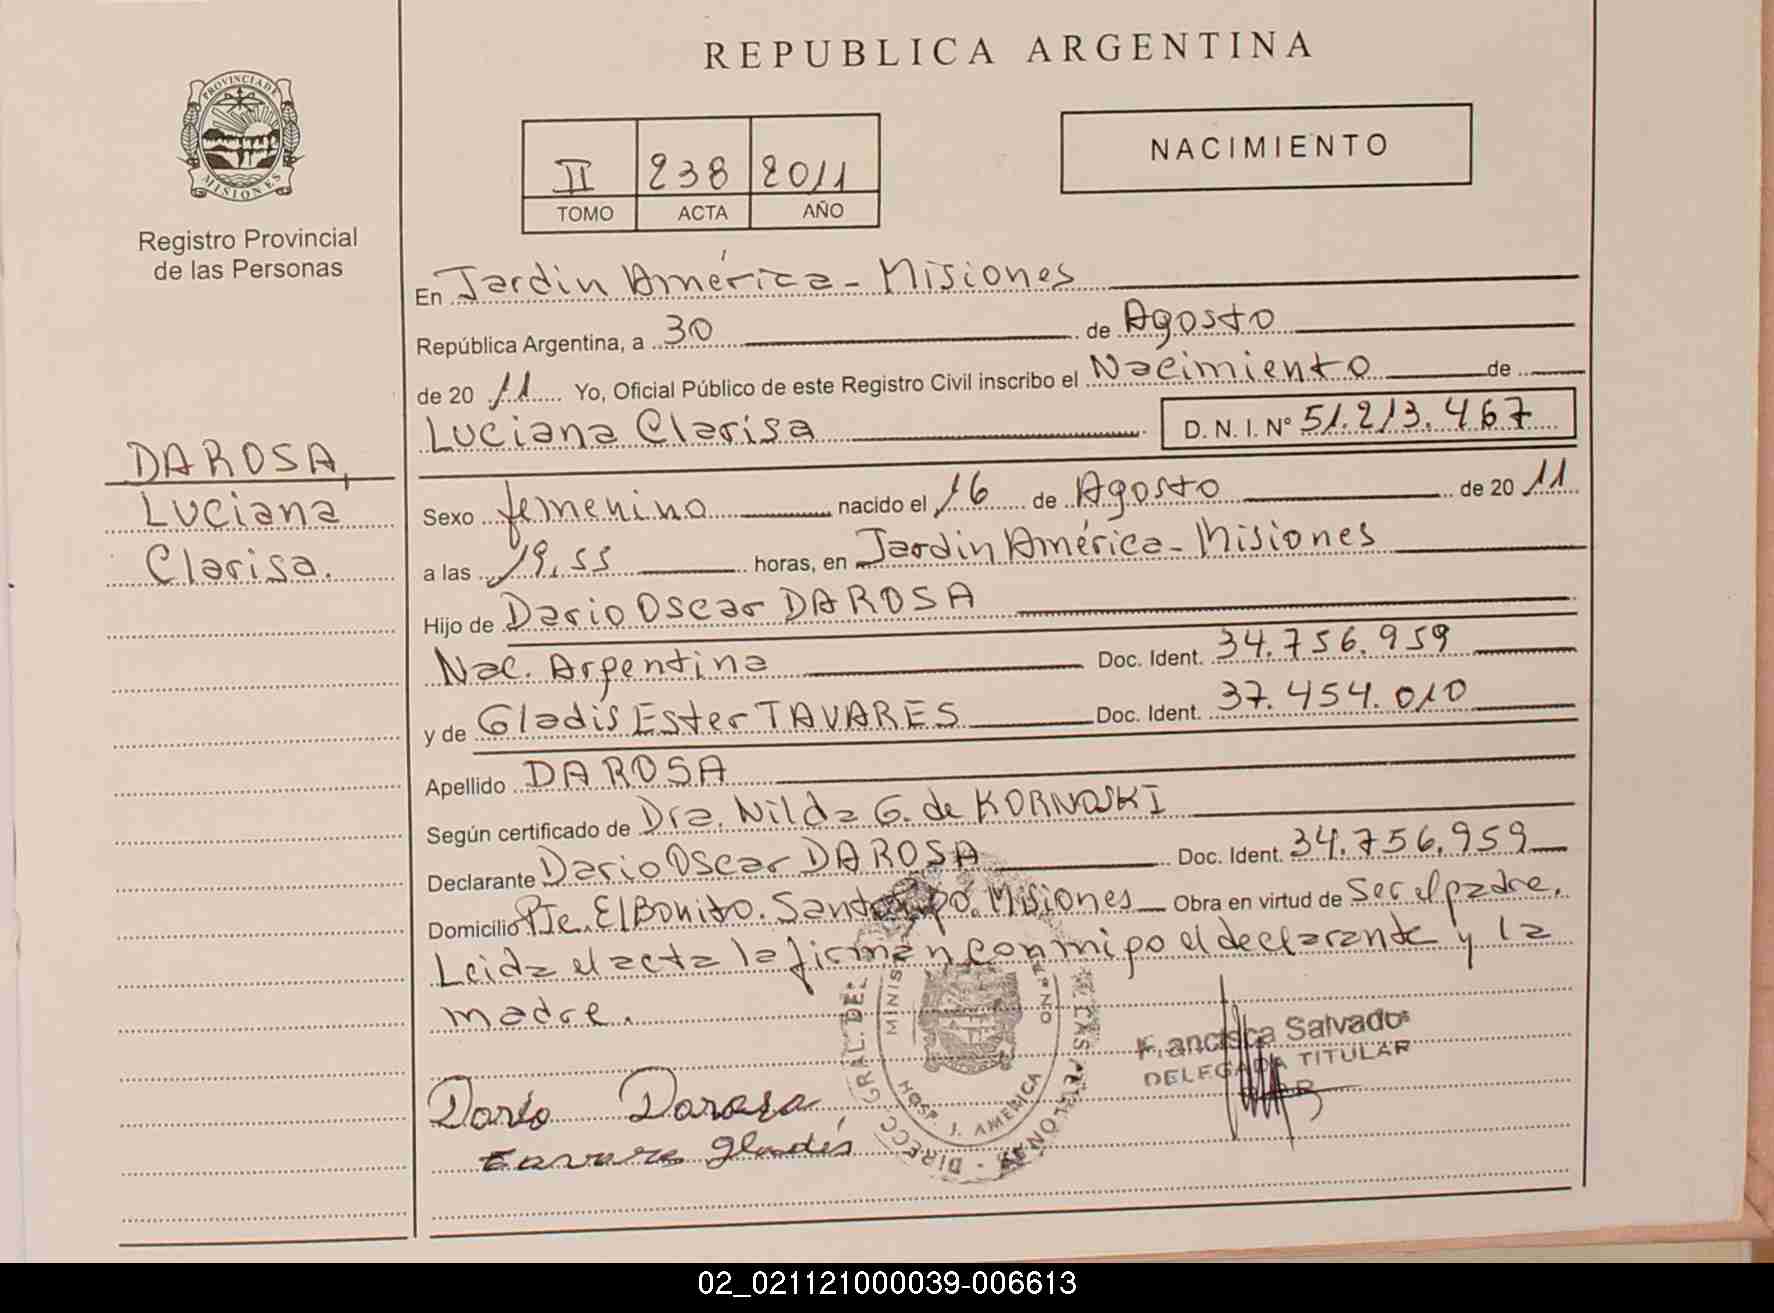 REPUBLICA ARGENTINA
PROVINCIA DE
MISIONES
Registro Provincial
de las Personas
II 238 2011
TOMO ACTA AÑO
NACIMIENTO
DAROSA,
Luciana
Clarisa.
En Jardin América - Misiones
República Argentina, a 30 de Agosto
de 20 11 Yo, Oficial Público de este Registro Civil inscribo el Nacimiento de
Luciana Clarisa D. N. I. N° 51.213.467
Sexo femenino nacido el 16 de Agosto de 20 11
a las 19,55 horas, en Jardin América - Misiones
Hijo de Dario Oscar DAROSA
Nac. Argentina Doc. Ident. 34.756.959
y de Gladis Ester TAVARES Doc. Ident. 37.454.010
Apellido DAROSA
Según certificado de Dra. Nilda G. de KORNOSKI
Declarante Dario Oscar DAROSA Doc. Ident. 34.756.959
Domicilio Pje. El Bonito. Santo Pipó. Misiones Obra en virtud de Ser el padre.
Leida el acta la firman conmigo el declarante y la
madre.
Francisca Salvador
DELEGADA TITULAR
Dario Darosa
Tavares gladis
DIRECC GRAL DEL
HOSP. J. AMERICA
02_021121000039-006613